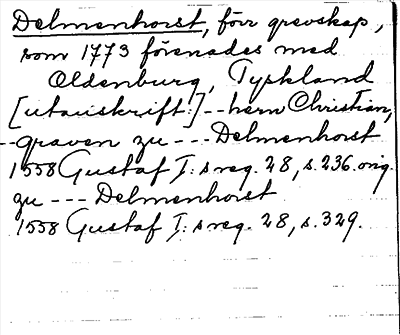 Delmenhorst, förr grevskap,
som 1773 förenades med
Oldenburg, Tyskland
[utanskrift:] -- hern Christian,
-- graven zu --- Delmenhorst
1558 Gustaf I:s reg. 28, s. 236. orig.
zu --- Delmenhorst
1558 Gustaf I:s reg. 28, s. 329.